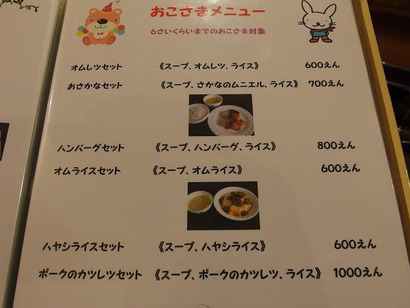 おこさまメニュー
6さいくらいまでのおこさま対象
オムレツセット 《スープ、オムレツ、ライス》 600えん
おさかなセット 《スープ、さかなのムニエル、ライス》 700えん
ハンバーグセット 《スープ、ハンバーグ、ライス》 800えん
オムライスセット 《スープ、オムライス》 600えん
ハヤシライスセット 《スープ、ハヤシライス》 600えん
ポークのカツレツセット 《スープ、ポークのカツレツ、ライス》 1000えん